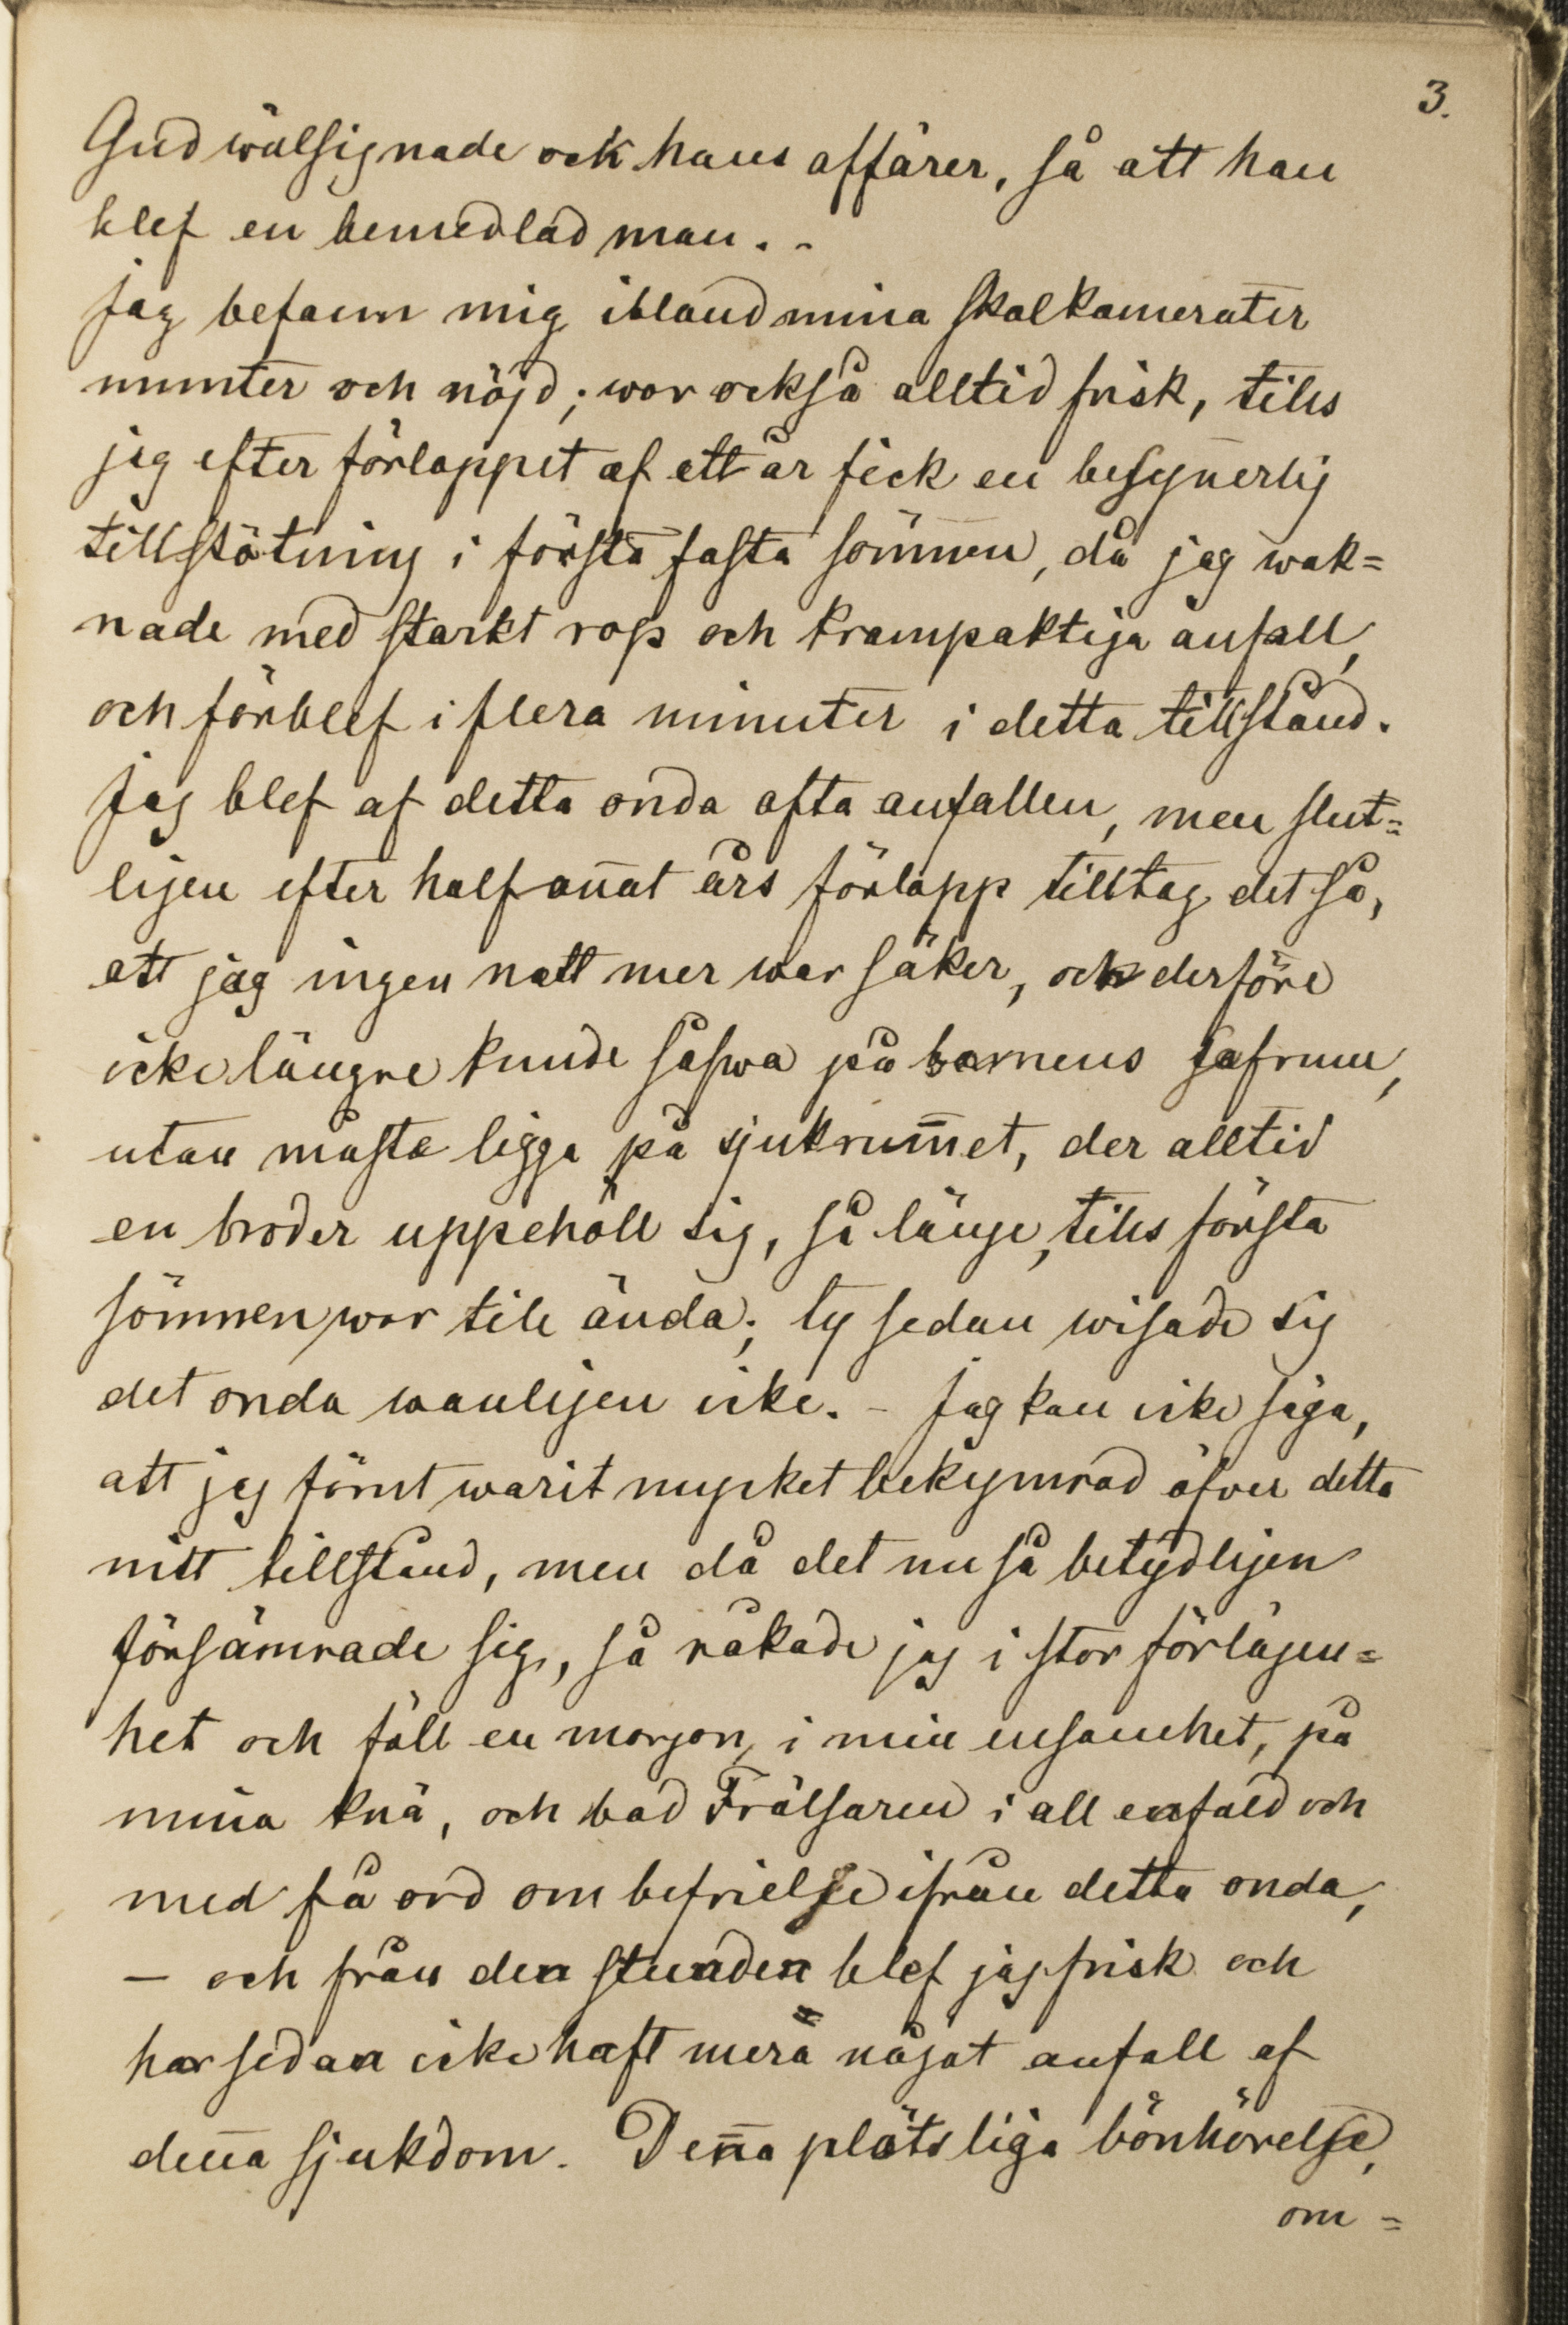 3.
Gud wälsignade ock hans affärer, så att han
blef en bemedlad man. -
Jag befann mig ibland mina skolkamerater
munter och nöjd; war också alltid frisk, tills
jag efter förloppet af ett år fick en besynerlig
tillstötning i första fasta sömnen, då jag wak=
nade med starkt rop och krampaktiga anfall,
och förblef i flera minuter i detta tillstånd.
Jag blef af detta onda ofta anfallen, men slut=
ligen efter halfan̄at års förlopp tilltog det så,
att jag ingen natt mer war säker, och derföre
icke längre kunde såfwa på barnens safrum,
utan måste ligga på sjukrum̄et, der alltid
en broder uppehöll sig, så länge, tills första
sömnen war till ända; ty sedan wisade sig
det onda wanligen icke. - Jag kan icke säga,
att jag förut warit mycket bekymrad öfver detta
mitt tillstånd, men då det nu så betydligen
försämrade sig, så råkade jag i stor förlägen=
het och föll en morgon, i min ensamhet, på
mina knä, och bad Frälsaren i all enfald och
med få ord om befrielse ifrån detta onda,
— och från den stunden blef jag frisk och
har sedan icke haft mera något anfall af
denna sjukdom. Den̄a plötsliga bönhörelse,
om =